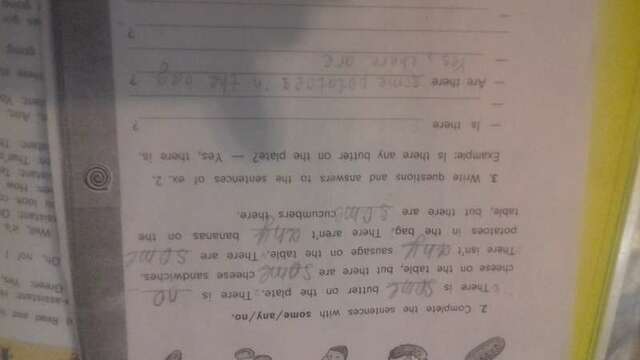 2. Complete the sentences with some/any/no.
There is some butter on the plate. There is no
cheese on the table, but there are some cheese sandwiches.
There isn't any sausage on the table. There are some
potatoes in the bag. There aren't any bananas on the
table, but there are some cucumbers there.
3. Write questions and answers to the sentences of ex. 2.
Example: Is there any butter on the plate? — Yes, there is.
— Is there ?
—
— Are there some potatoes in the bag ?
— Yes, there are
?
—
Read and
-assistant: H
Green: Yes
Oh, no! I
Well, it's